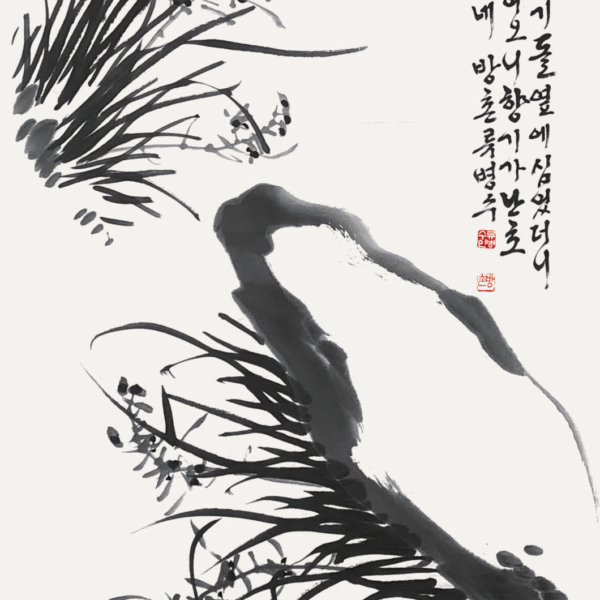 기 돌 옆에 심었더니
오니 향기가 난초
네 방촌 류병수